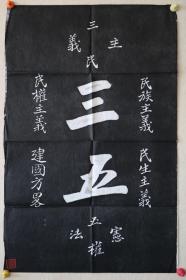 三民主義
民族主義
民生主義
三五
民權主義
建國方畧
五權憲法